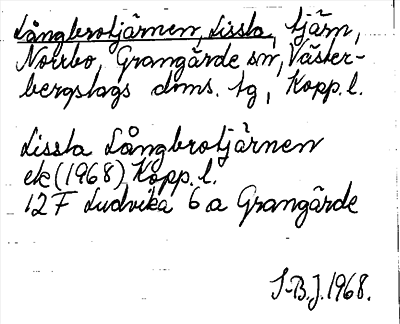 Långbrotjärnen, Lissla, tjärn,
Norrbo, Grangärde sn, Väster-
bergslags doms. tg, Kopp. l.
Lissla Långbrotjärnen
ek (1968) Kopp. l.
12 F Ludvika 6 a Grangärde
S-B.J. 1968.